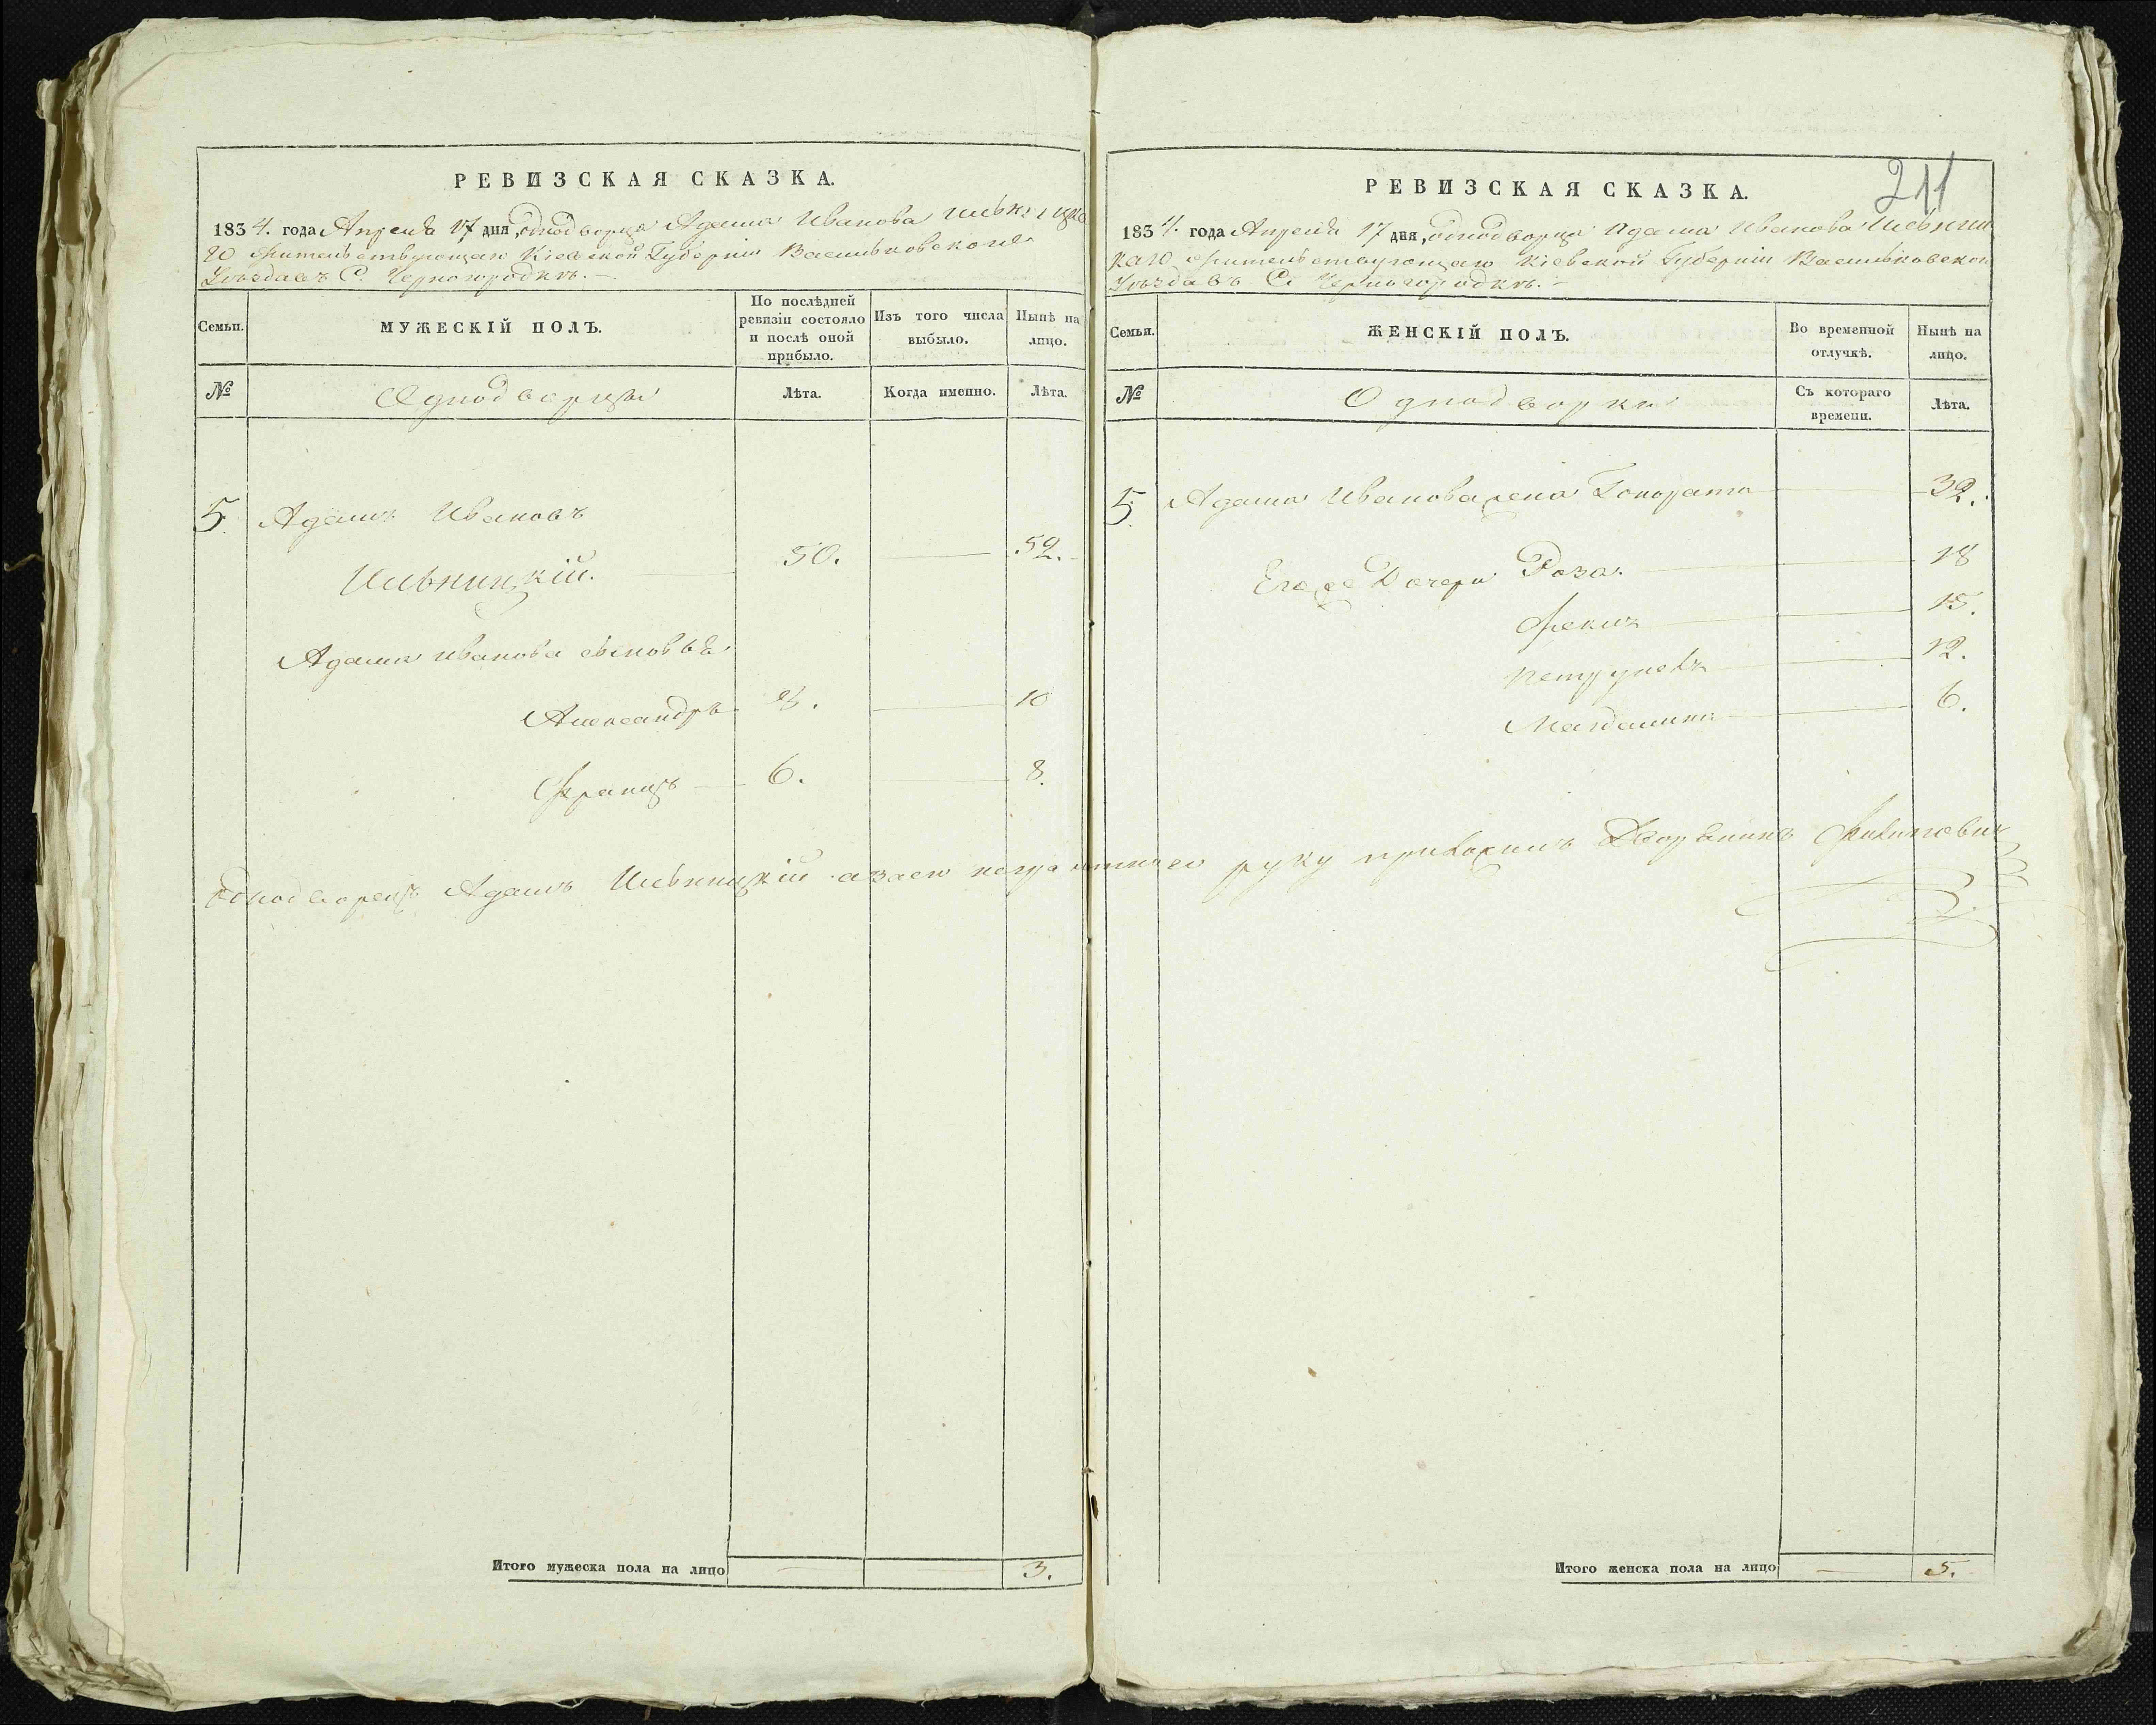 РЕВИЗСКАЯ СКАЗКА.
1834. года Апреля 17 дня, однодворца Адама Иванова Ильницка
го жительствующаго Кіевской Губерніи Васильковского
Уѣзда въ С. Черногородкѣ.
Семьи.
МУЖЕСКІЙ ПОЛЪ.
По послѣдней ревизіи состояло и послѣ оной прибыло.
Изъ того числа выбыло.
Нынѣ на лицо.
№
Однодворцы
Лѣта.
Когда именно.
Лѣта.
5. Адамъ Ивановъ
Ильницкій. 50. 52.
Адама Иванова сыновья
Александръ 8. 10
Францъ 6. 8.
Итого мужеска пола на лицо 3.
211
РЕВИЗСКАЯ СКАЗКА.
1834. года Апреля 17 дня, однодворца Адама Иванова Ильниц
каго жительствующаго Кіевской Губерніи Васильковского
Уѣзда въ С. Черногородкѣ.
Семьи.
ЖЕНСКІЙ ПОЛЪ.
Во временной отлучкѣ.
Нынѣ на лицо.
№
Однодворки
Съ котораго времени.
Лѣта.
5. Адама Иванова жена Гонората 32.
Его же Дочери Роза. 18
15.
12.
Магдалина 6.
Однодворецъ Адамъ Ильницкій а за его неграмотного руку приложилъ Дворянинъ
Итого женска пола на лицо 5.